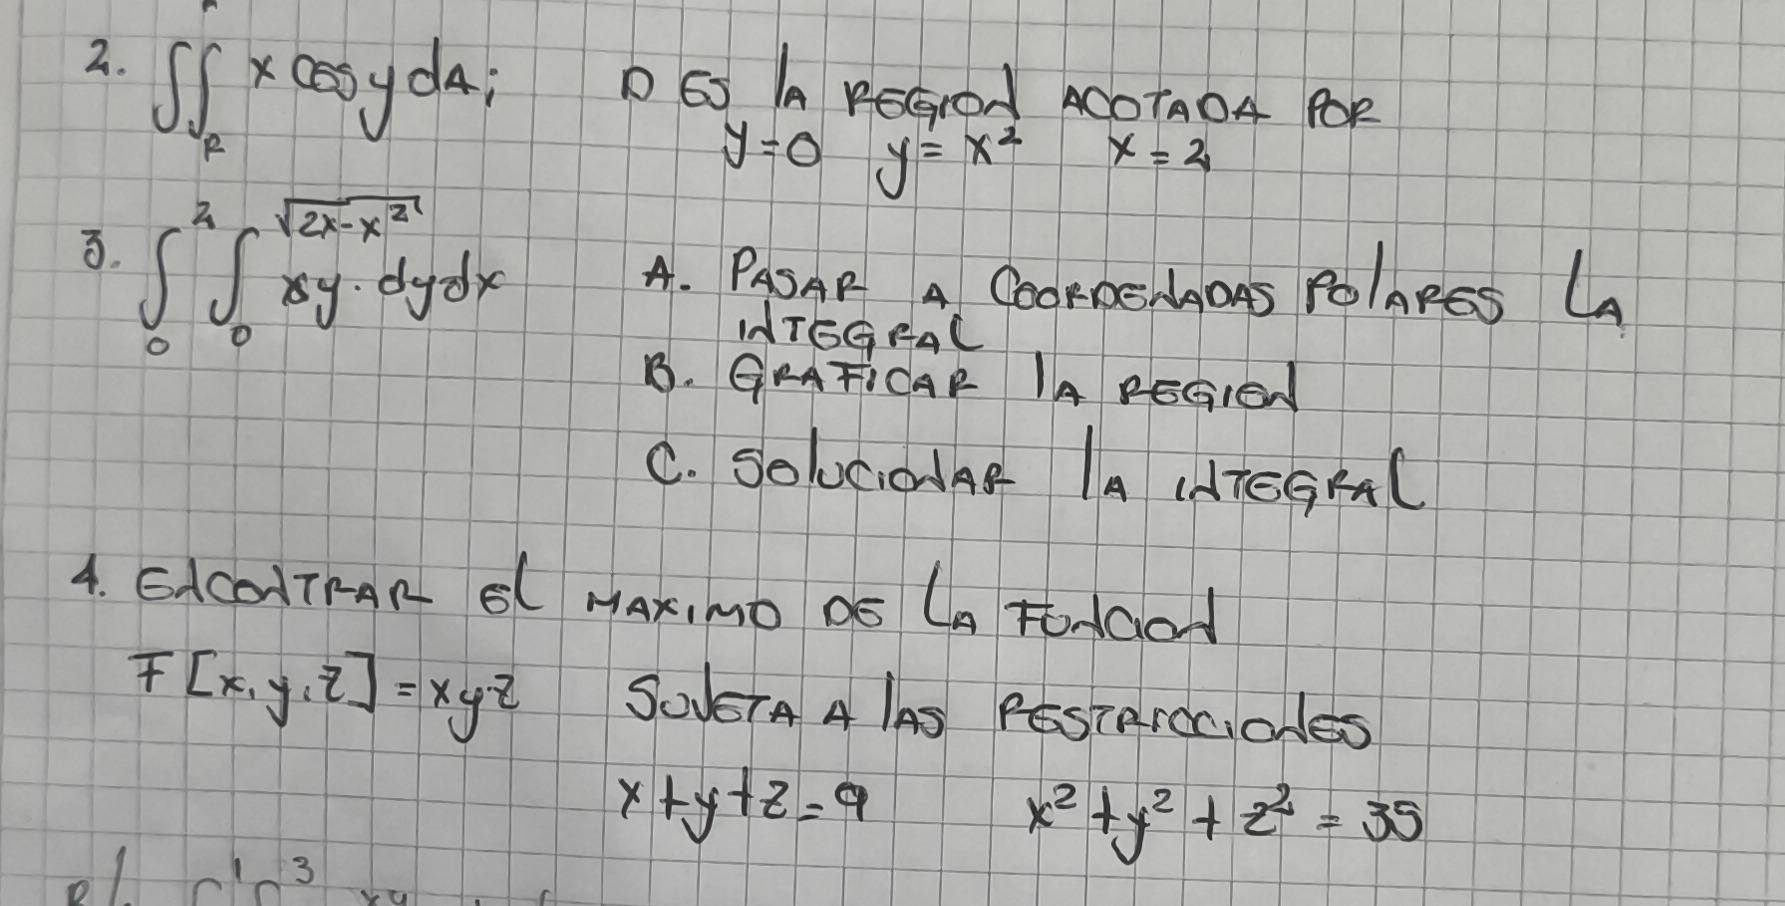 2. ∬_R x cos y dA; D ES LA REGION ACOTADA POR
y=0 y=x² x=2
3. ∫₀² ∫₀^√(2x-x²) xy·dydx A. PASAR A COORDENADAS POLARES LA
INTEGRAL
B. GRAFICAR LA REGION
C. SOLUCIONAR LA INTEGRAL
4. ENCONTRAR EL MAXIMO DE LA FUNCION
F[x,y,z]=xyz SUJETA A LAS RESTRICCIONES
x+y+z=9 x²+y²+z²=35